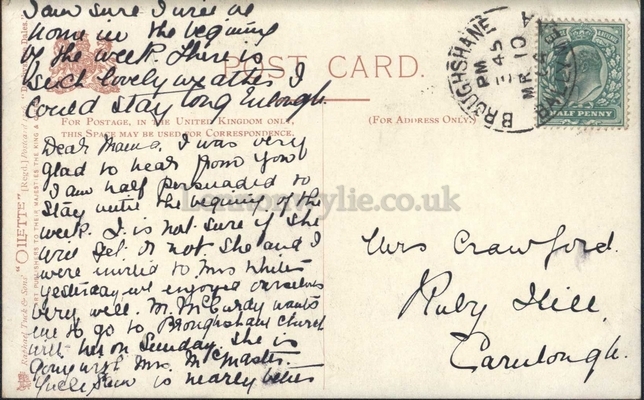 I am sure I will be
home in the begining
of the week. There is
such lovely weather I
could stay long enough.
POST CARD.
FOR POSTAGE, IN THE UNITED KINGDOM ONLY,
THIS SPACE MAY BE USED FOR CORRESPONDENCE.
(FOR ADDRESS ONLY.)
Dear Mama, I was very
glad to hear from you
I am half persuaded to
stay until the begining of the
week. I. is not sure if she
will get or not she and I
were invited to Mrs Whites
yesterday we enjoyed ourselves
very well. M. McCurdy wants
me to go to Broughshane Church
with her on Sunday. She is
going with Mrs. McMaster.
is nearly better
Mrs Crawford.
Ruby Hill,
Carnlough.
BROUGHSHANE
3 45 PM
MR 10
BALLYMENA
HALF PENNY
Raphael Tuck & Sons' "OILETTE" [Regd.] Postcard
ART PUBLISHERS TO THEIR MAJESTIES THE KING &
Dales."
wylie.co.uk